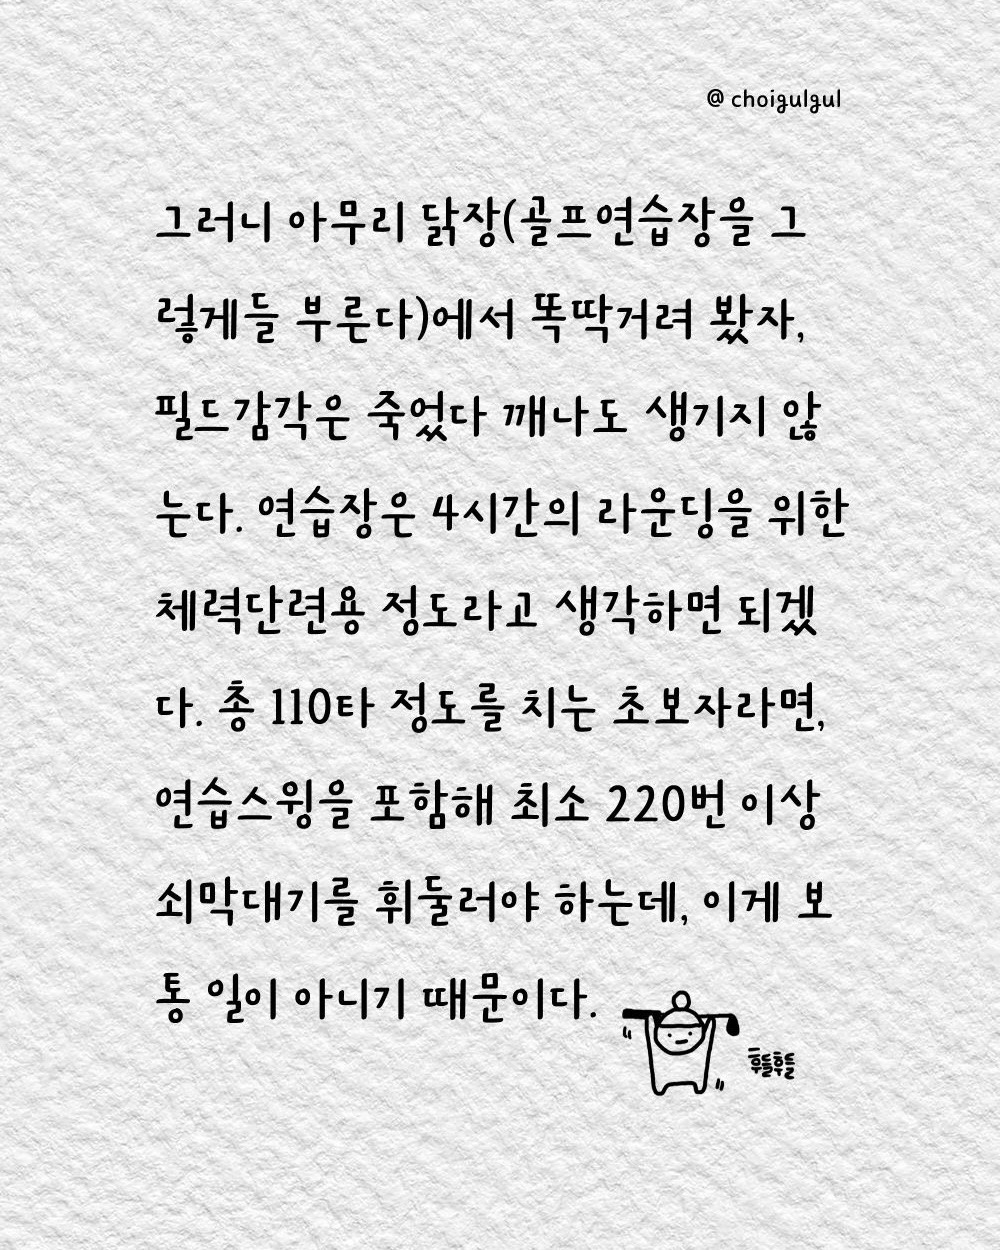 @ choigulgul
그러니 아무리 닭장(골프연습장을 그
렇게들 부른다)에서 똑딱거려 봤자,
필드감각은 죽었다 깨나도 생기지 않
는다. 연습장은 4시간의 라운딩을 위한
체력단련용 정도라고 생각하면 되겠
다. 총 110타 정도를 치는 초보자라면,
연습스윙을 포함해 최소 220번 이상
쇠막대기를 휘둘러야 하는데, 이게 보
통 일이 아니기 때문이다.
후들후들